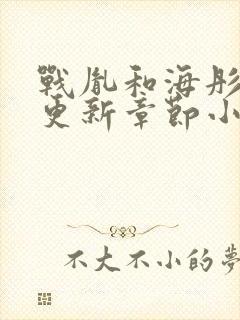 戰胤和海彤
更新章節小
不大不小的夢